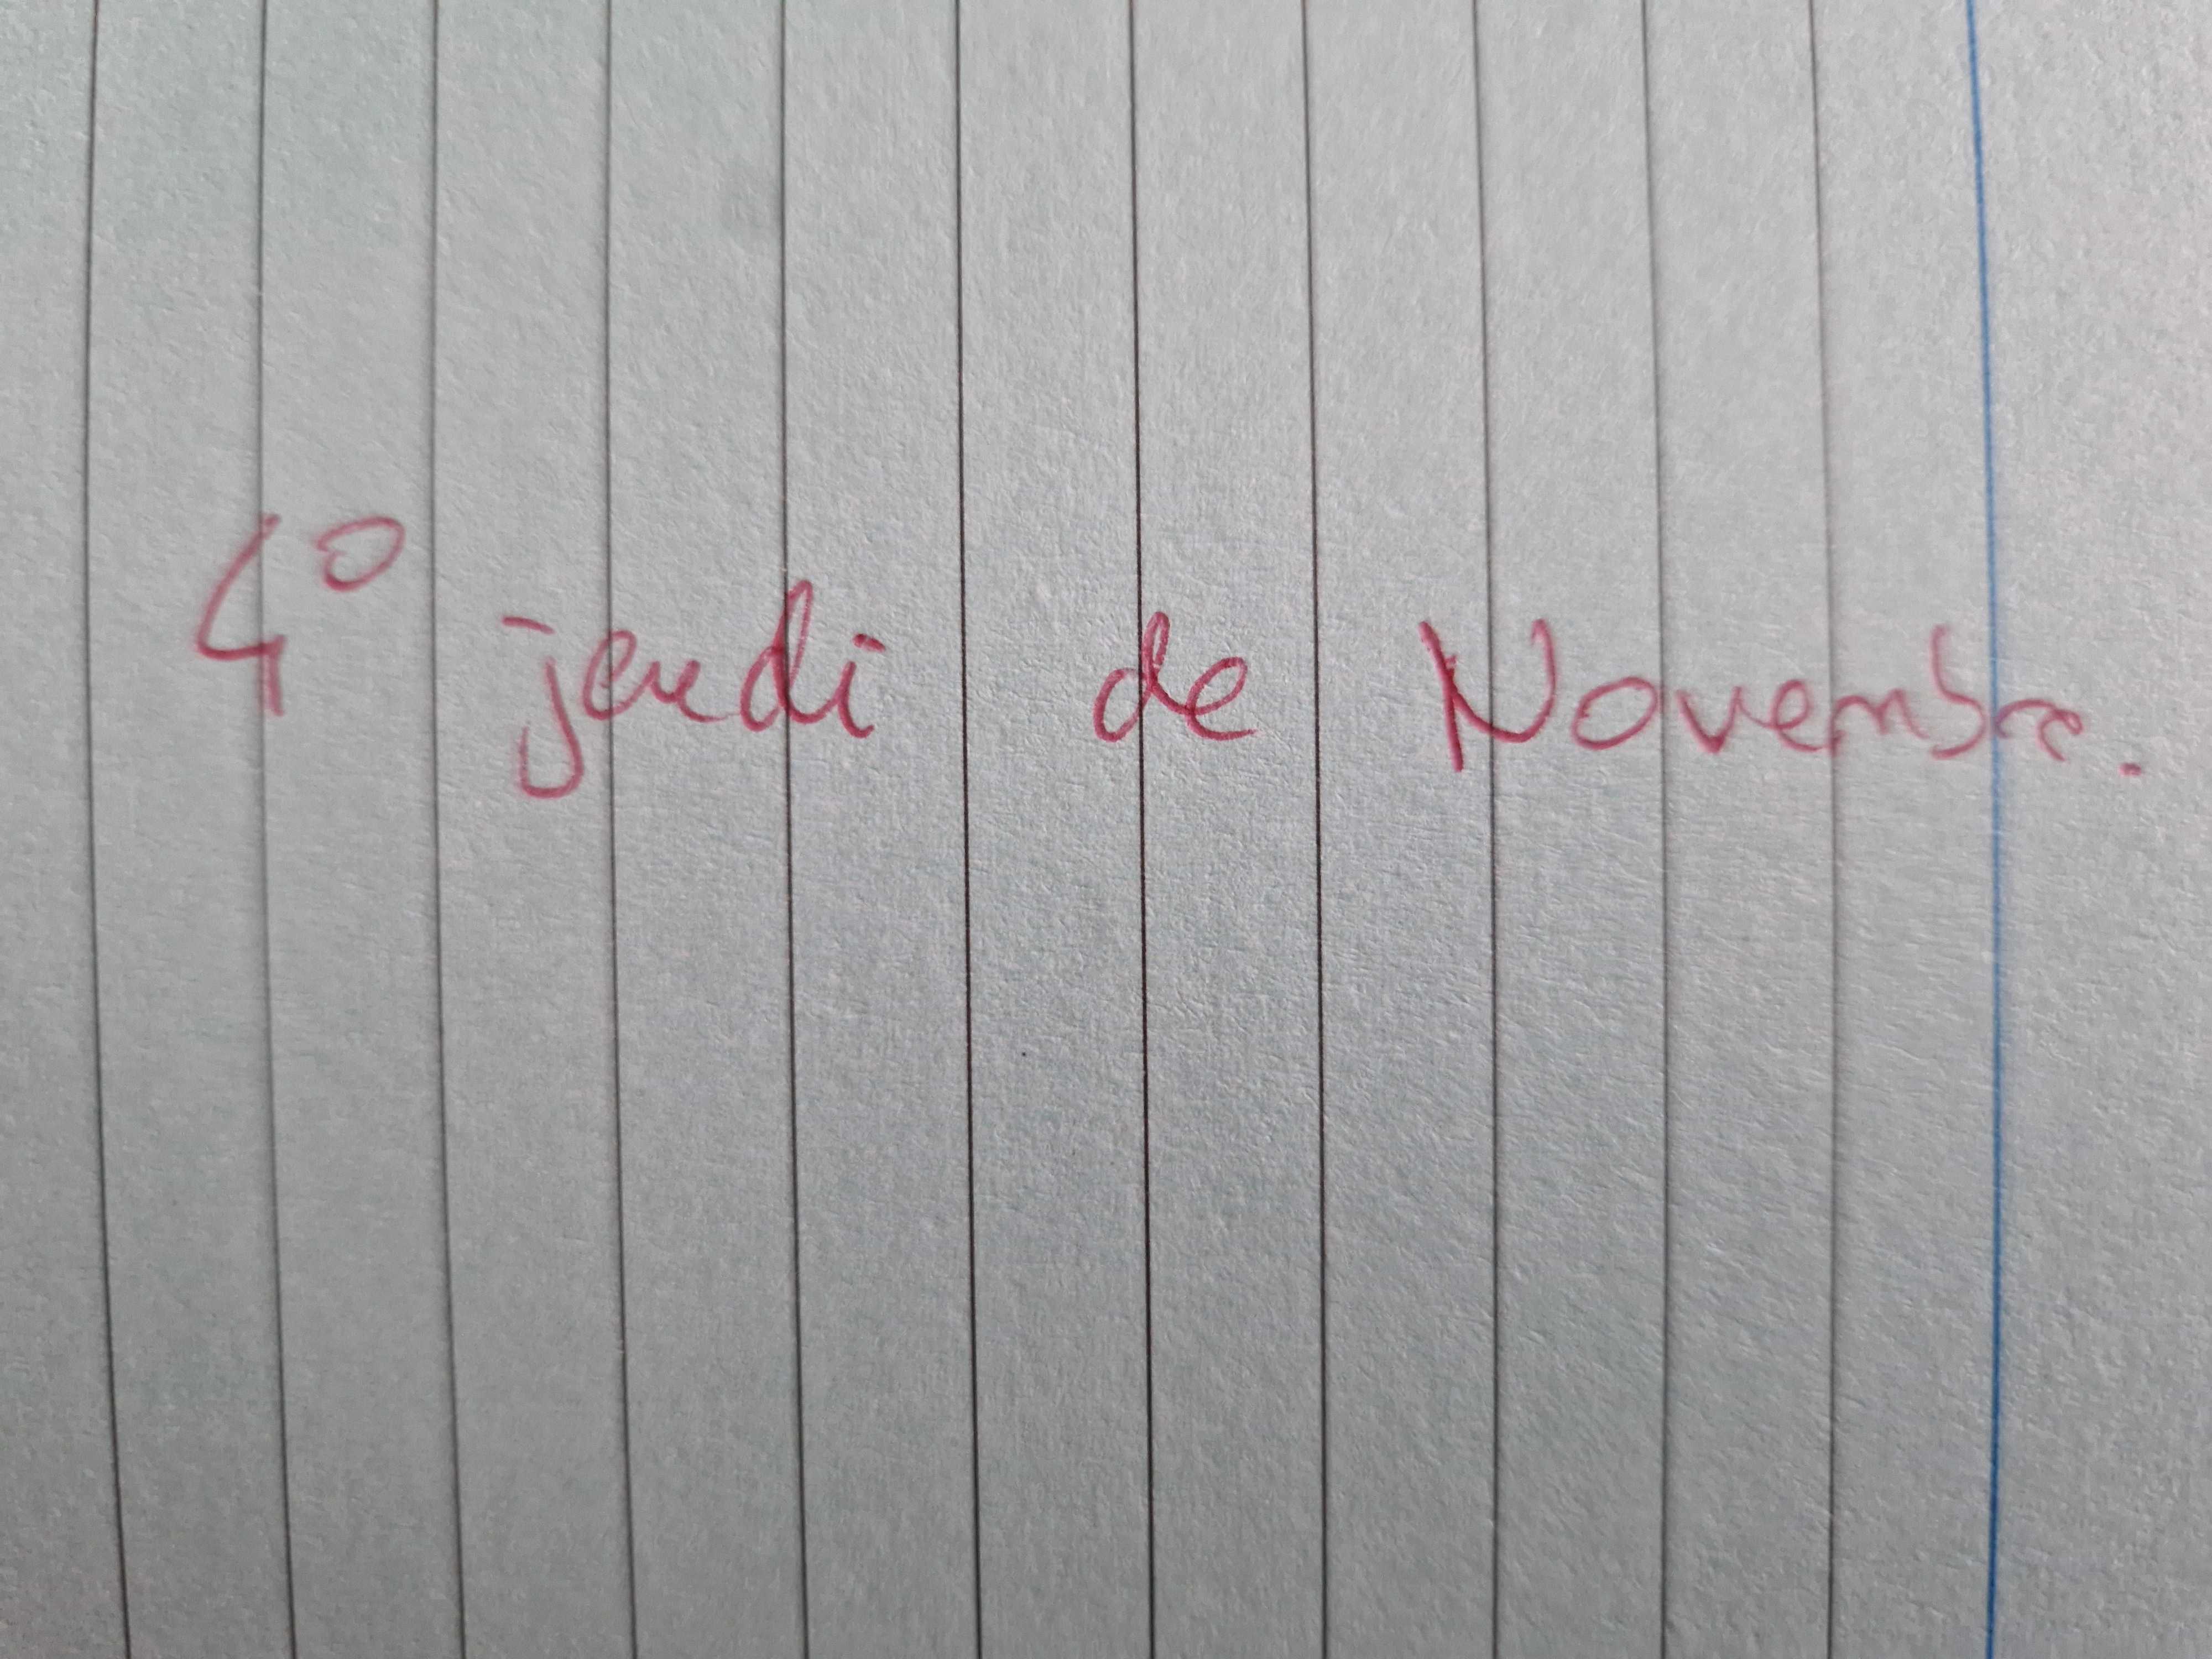 4° jeudi de Novembre.